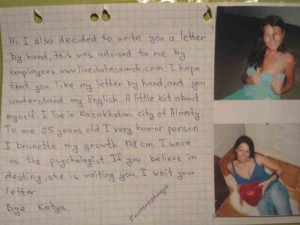 Hi. I also decided to write you a letter
by hand, this was advised to me by
employees www.livedatesearch.com. I hope
that you like my letter by hand, and you
understand my English. A little bit about
myself. I live in Kazakhstan city of Almaty.
To me 25 years old I very humor person
I brunette my growth cm. I work
as the psychologist. If you believe in
destiny, she is waiting you. I wait your
letter.
Bye Katya